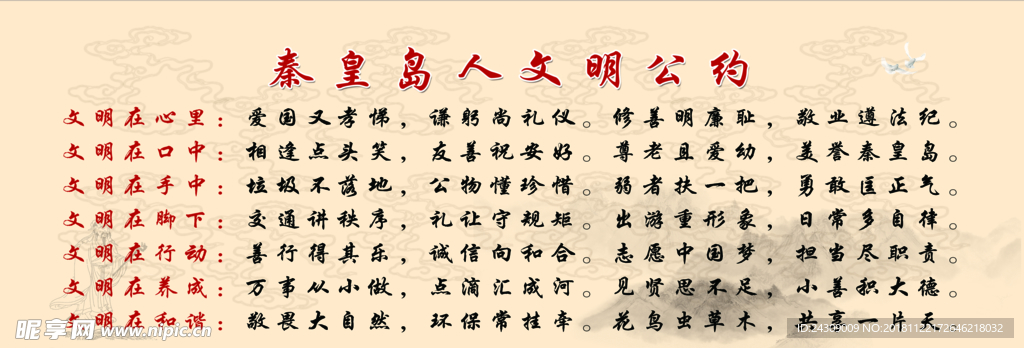 秦皇岛人文明公约
文明在心里：爱国又孝悌，谦躬尚礼仪。修善明廉耻，敬业遵法纪。
文明在口中：相逢点头笑，友善祝安好。尊老且爱幼，美誉秦皇岛。
文明在手中：垃圾不落地，公物懂珍惜。弱者扶一把，勇敢匡正气。
文明在脚下：交通讲秩序，礼让守规矩。出游重形象，日常多自律。
文明在行动：善行得其乐，诚信向和合。志愿中国梦，担当尽职责。
文明在养成：万事从小做，点滴汇成河。见贤思不足，小善积大德。
文明在和谐：敬畏大自然，环保常挂牵。花鸟虫草木，共享一片天。
昵享网 www.nipic.cn
ID:24309009 NO:20181122172646218032